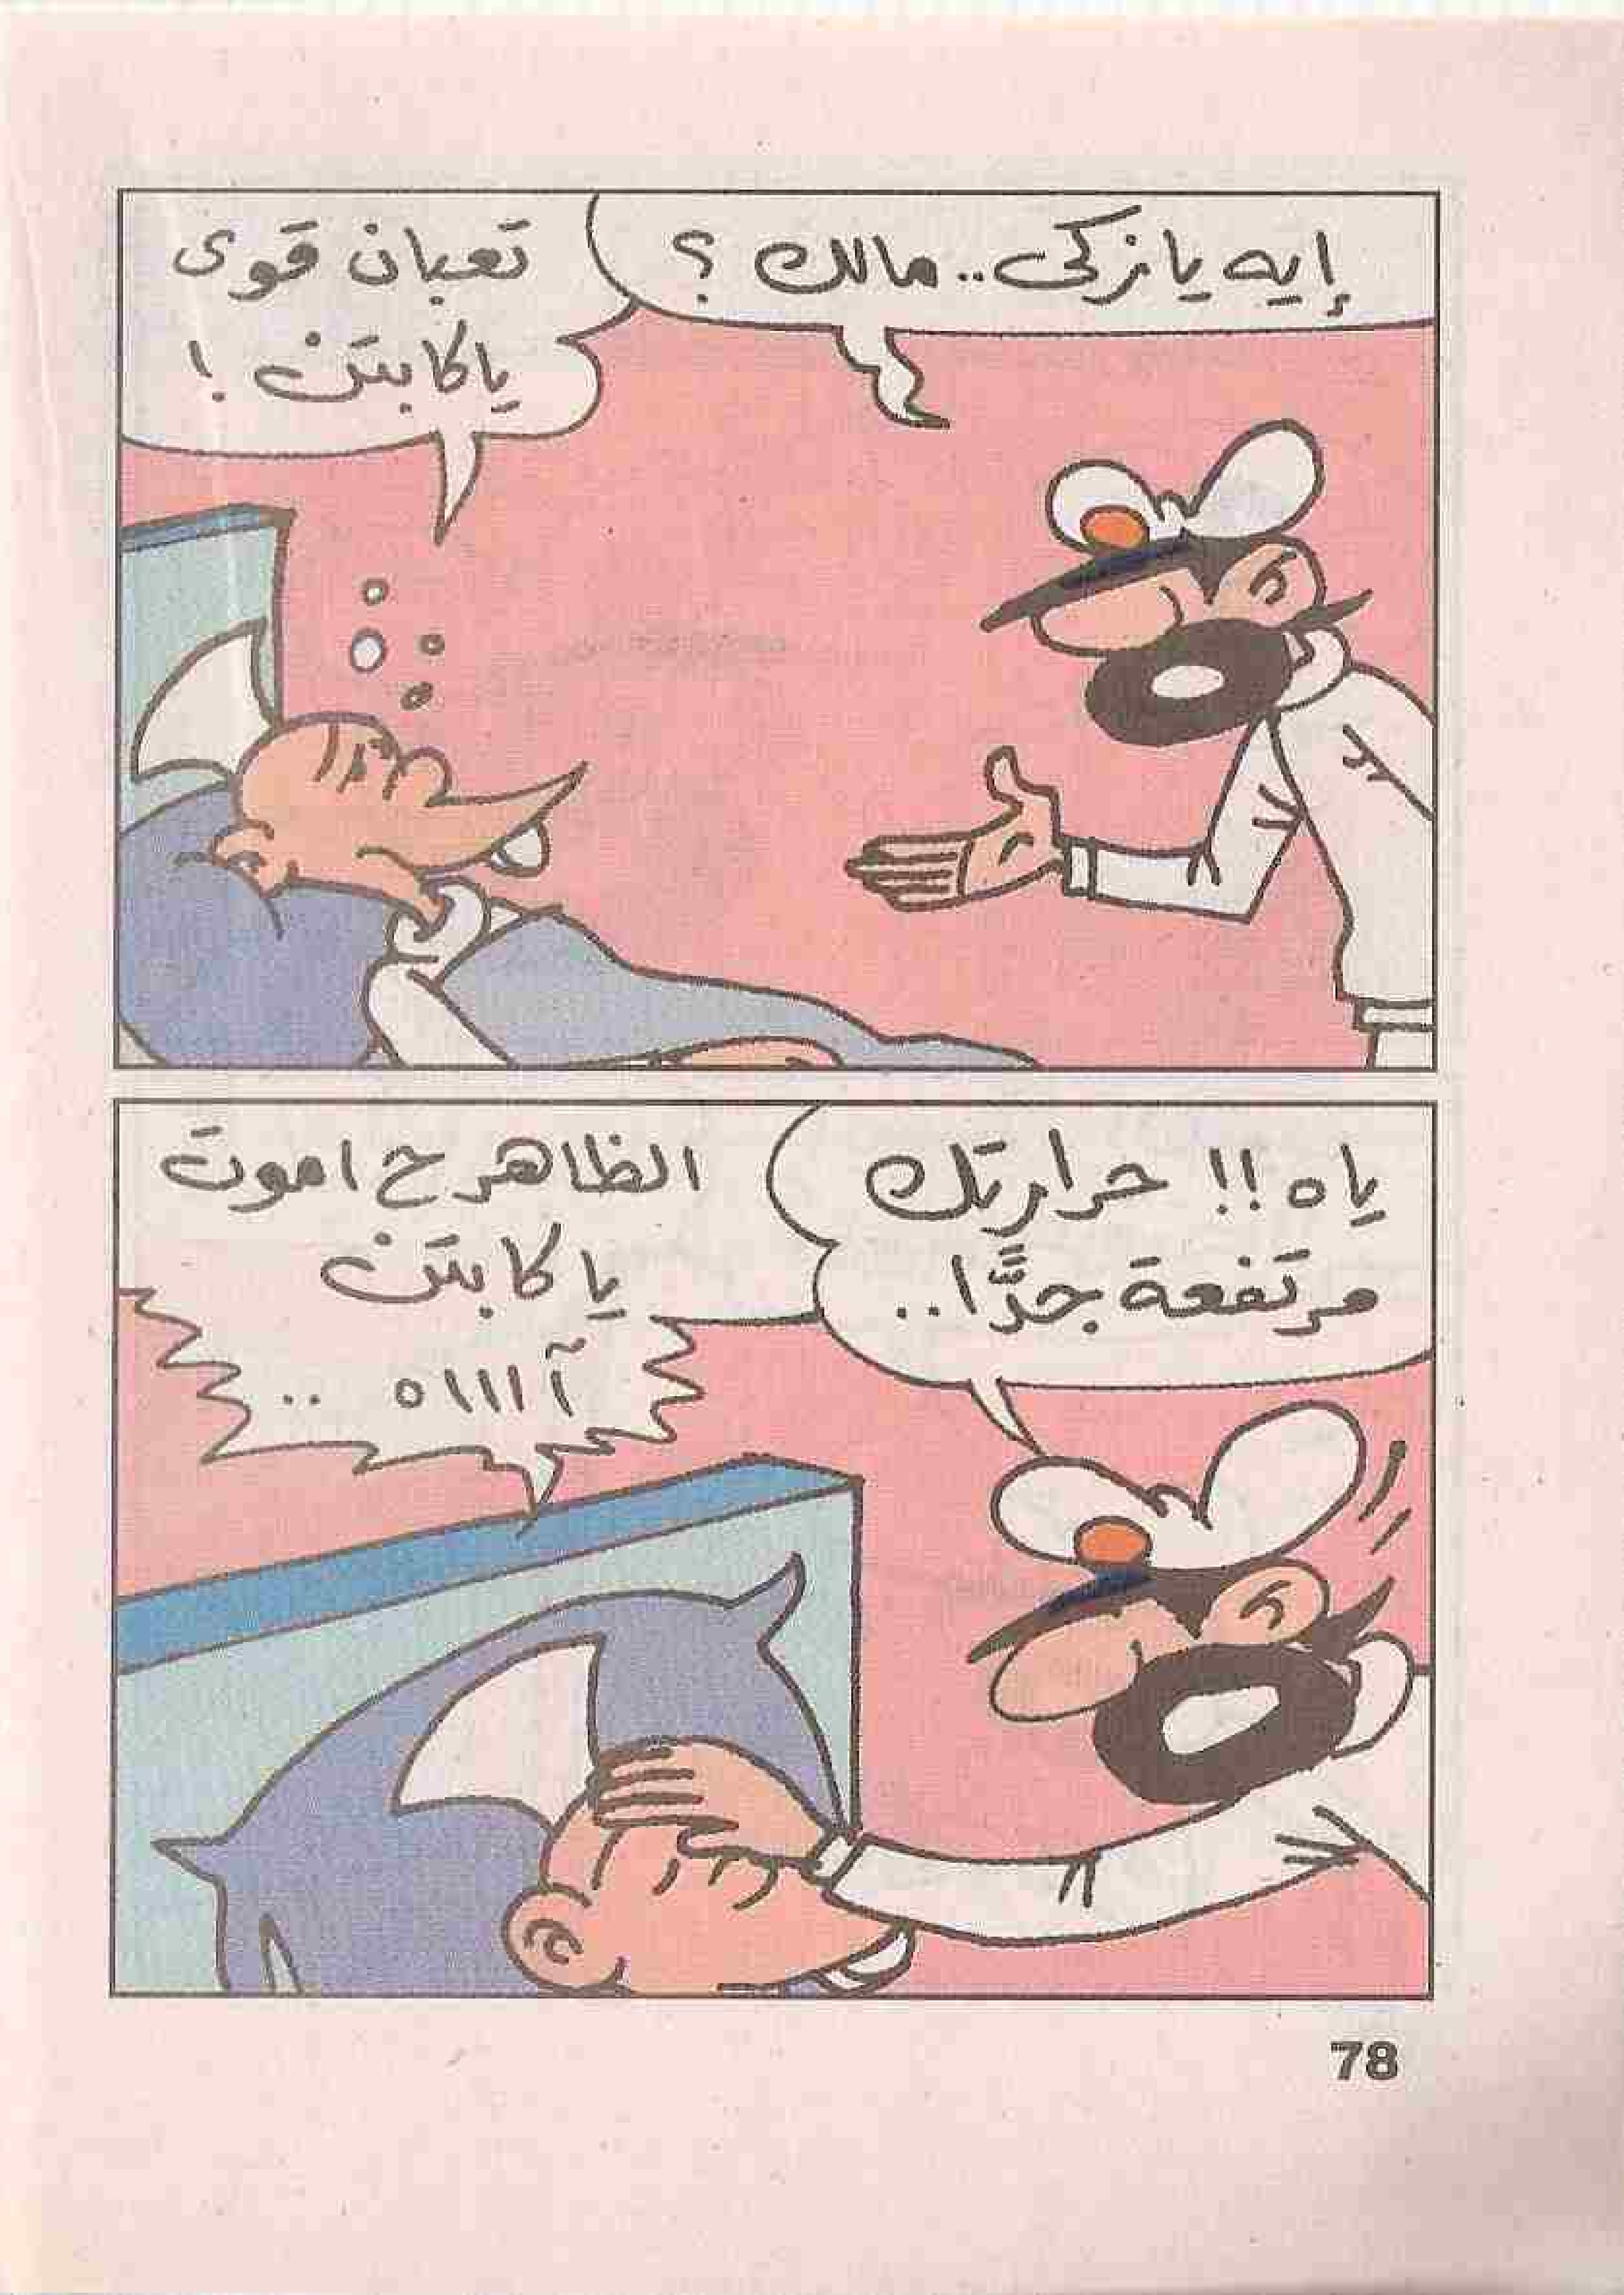 إيه يا زكى.. مالك ؟
تعبان قوى
يا كابتن !
ياه !! حرارتك
مرتفعة جدًّا..
الظاهر ح اموت
يا كابتن
آااااه ..
78